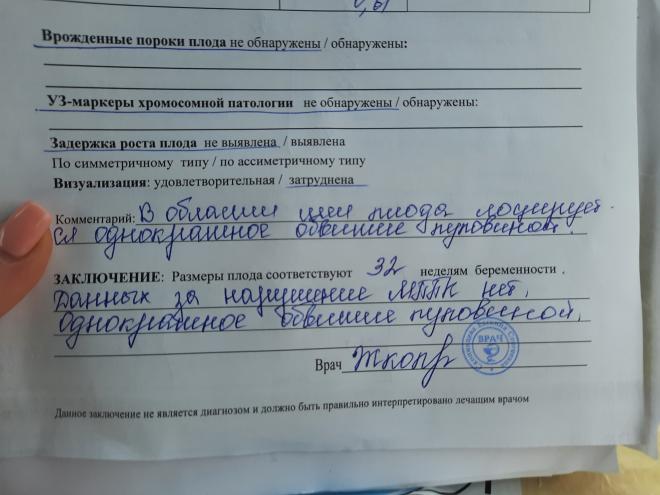 0,61
Врожденные пороки плода не обнаружены / обнаружены:
УЗ-маркеры хромосомной патологии не обнаружены / обнаружены:
Задержка роста плода не выявлена / выявлена
По симметричному типу / по ассиметричному типу
Визуализация: удовлетворительная / затруднена
Комментарий: В области шеи плода лоцирует-
ся однократное обвитие пуповиной.
ЗАКЛЮЧЕНИЕ: Размеры плода соответствуют 32 неделям беременности .
Данных за нарушение МППК нет.
Однократное обвитие пуповиной.
ВРАЧ
Врач
Данное заключение не является диагнозом и должно быть правильно интерпретировано лечащим врачом